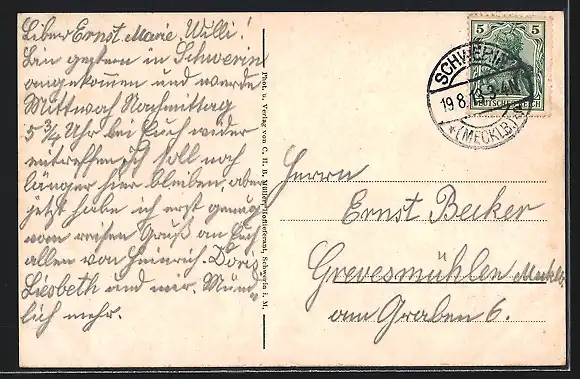 Lieber Ernst, Marie, Willi!
Bin gestern in Schwerin
angekommen und werde
Mittwoch Nachmittag
5 3/4 Uhr bei Euch wieder
eintreffen. Ich soll noch
länger hier bleiben, aber
jetzt habe ich erst genug
vom reisen Gruß an Euch
allen von Heinrich. Doris
Liesbeth und mir. Münd-
lich mehr.
Phot. u. Verlag von C. H. B. Müller, Hoflieferant, Schwerin i. M.
5 5
DEUTSCHES REICH
SCHWERIN
19.8. 3-4N
*(MECKLB.)
Herrn
Ernst Becker
Grevesmühlen Mecklb.
am Graben 6.